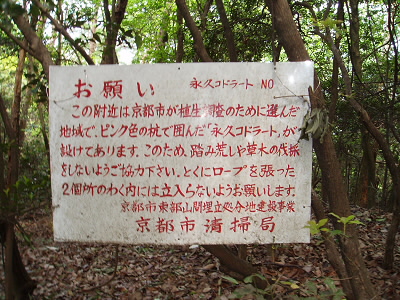 お願い 永久コドラート NO
この附近は京都市が植生調査のために選んだ
地域で、ピンク色の杭で囲んだ「永久コドラート」が
設けてあります。このため、踏み荒しや草木の伐採
をしないようご協力下さい。とくにロープを張った
2個所のわく内には立入らないようお願いします。
京都市東部山間埋立処分地建設事務
京都市清掃局